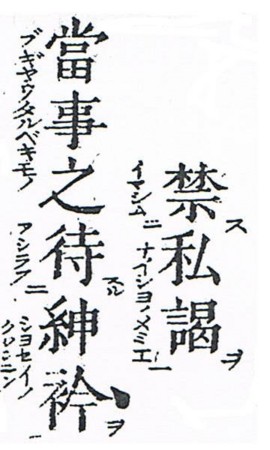 禁ス二私謁ヲ一
イマシム ナイシヨノメミエ
當事之待スル二紳衿ヲ
ブギヤウタルベキモノ アシラフ シヨセイノ